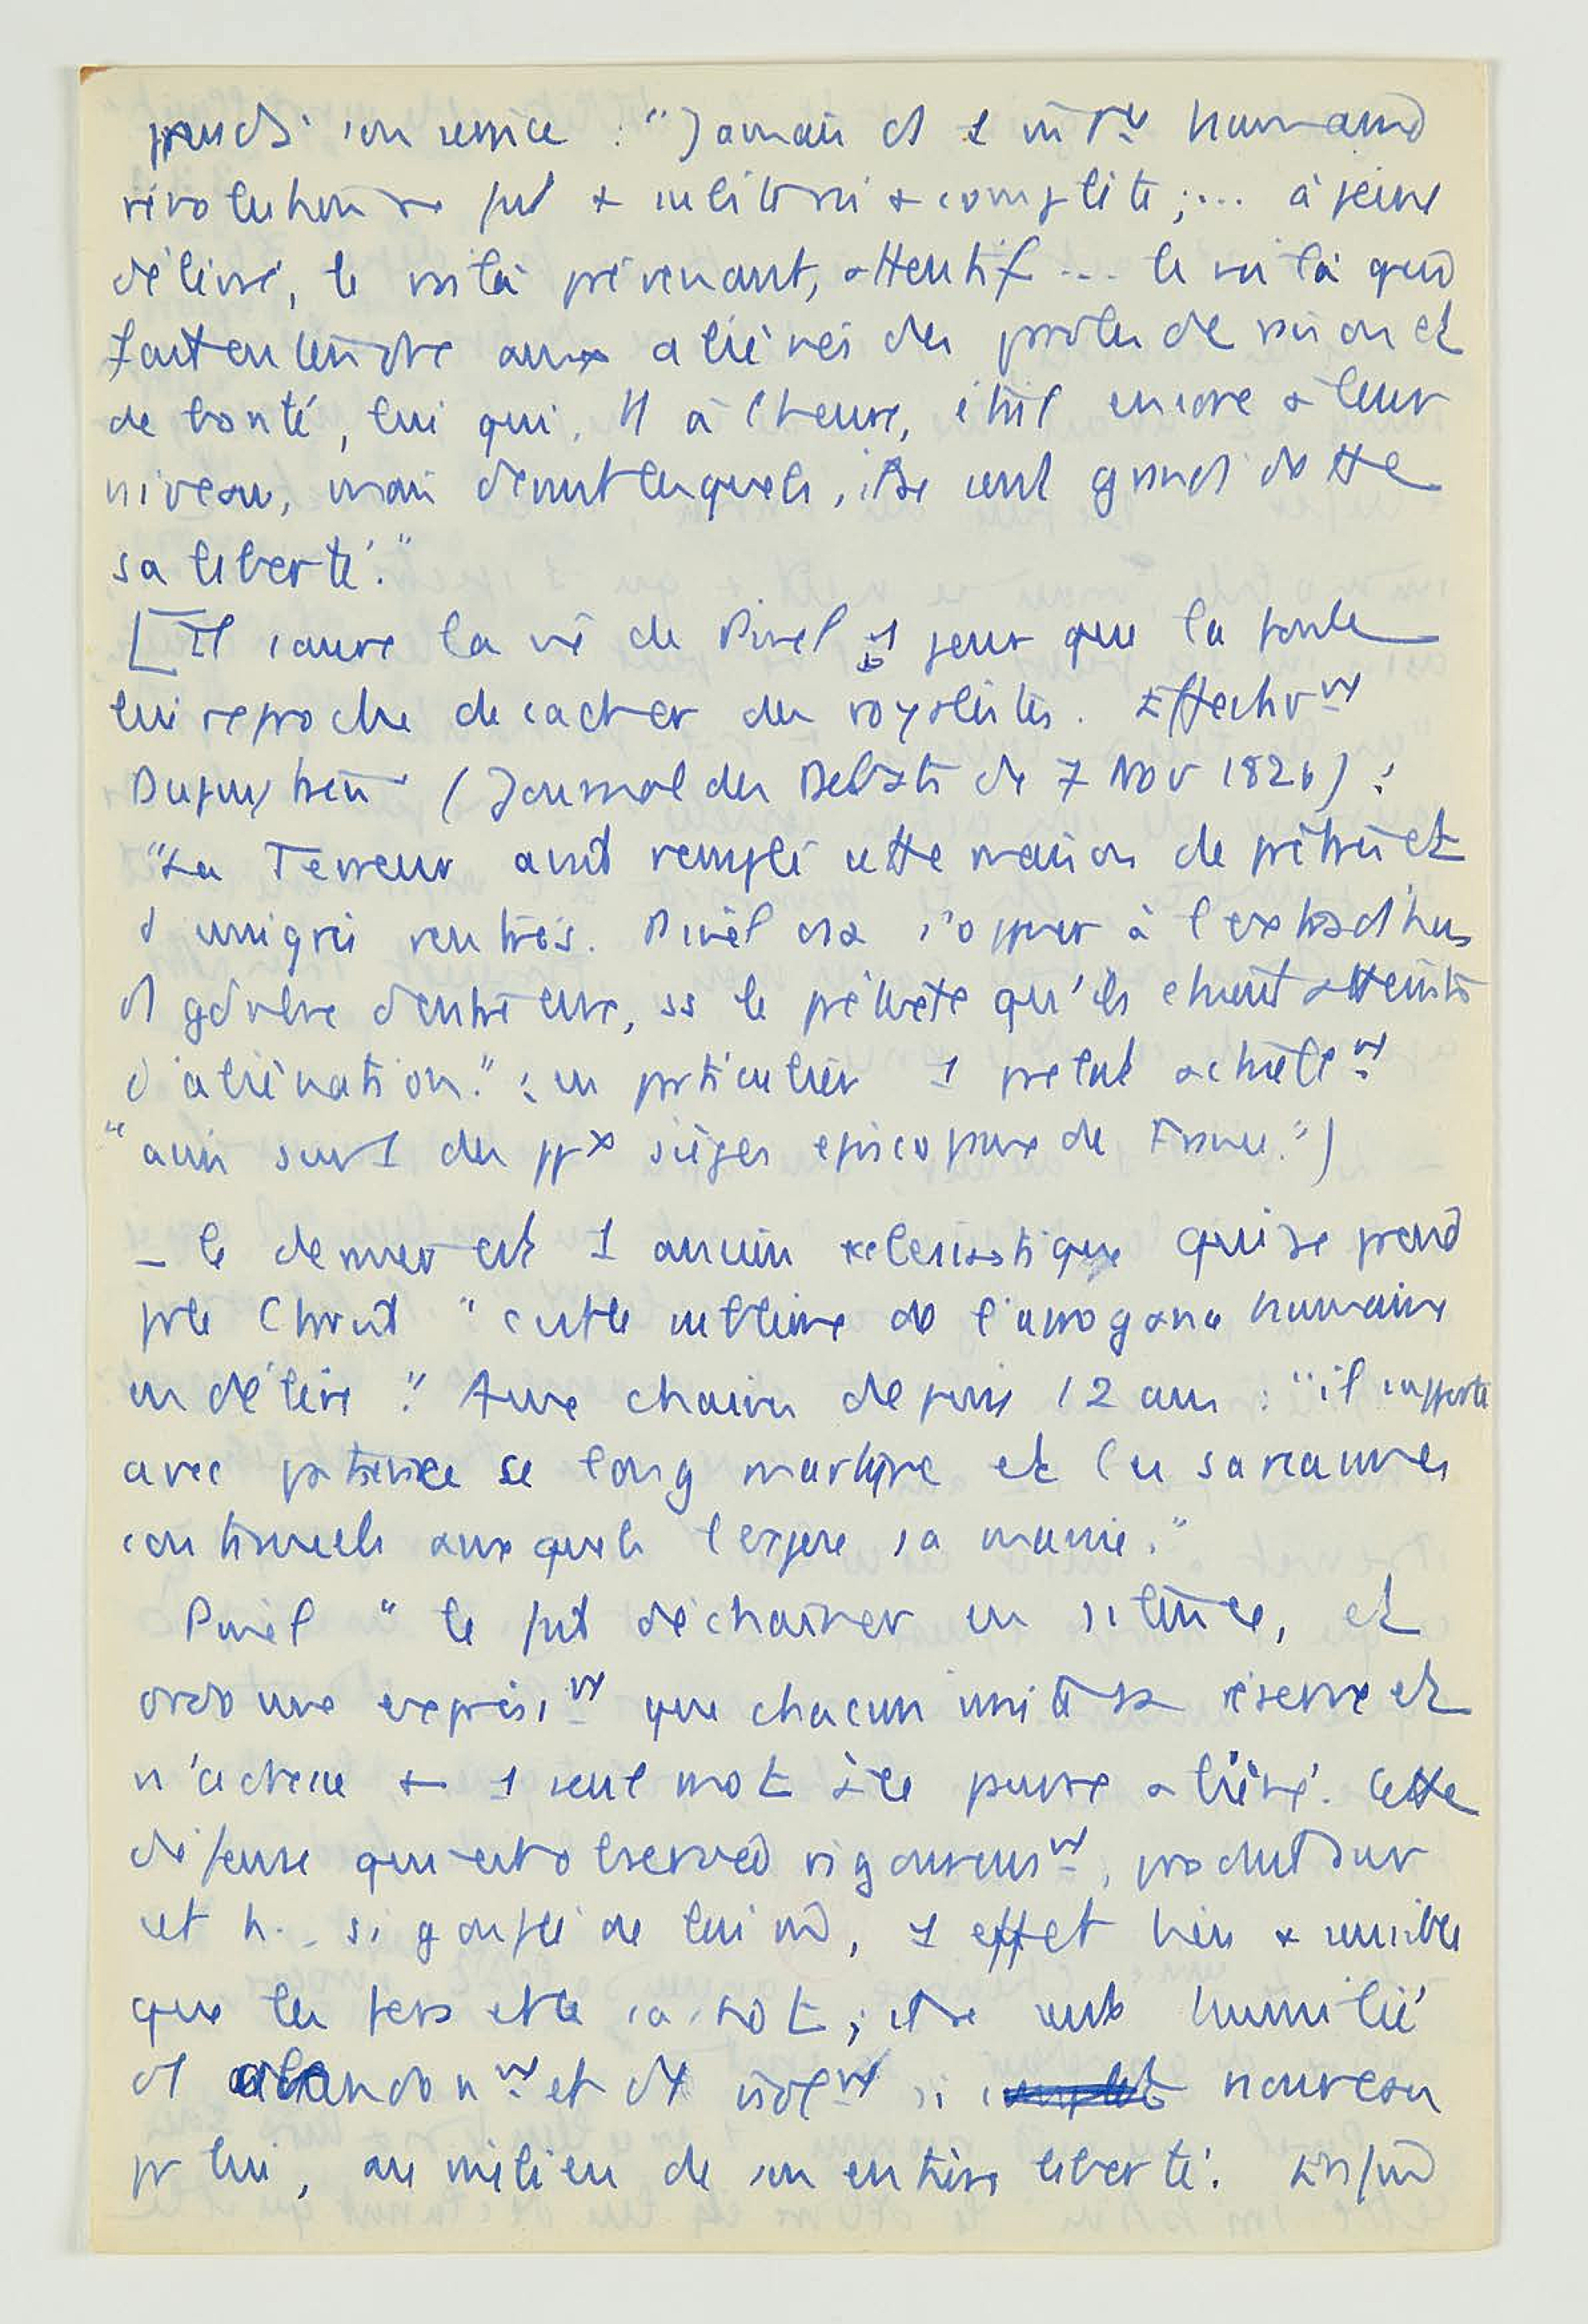 prend à son service : "Jamais ds 1 intell. humaine
révolution ne fut + subite ni + complète ; ... à peine
délivré, le voilà prévenant, attentif ... le voilà qui
fait entendre aux aliénés des paroles de raison et
de bonté, lui qui, tt à l'heure, était encore à leur
niveau, mais devant lesquels, il se sent grandi de tte
sa liberté."
[Il sauve la vie de Pinel 1 jour que la foule
lui reproche de cacher des royalistes. Effectivt
Dupuytren (Journal des Débats de 7 Nov 1826) :
"La Terreur avait rempli cette maison de prêtres et
d'émigrés rentrés. Pinel osa s'opposer à l'extrad. d'1
gd nbre d'entre eux, ss le prétexte qu'ils étaient atteints
d'aliénation." : en particulier 1 prélat actuellt
"assis sur 1 des ppx sièges épiscopaux de France.")
– le dernier est 1 ancien ecclésiastique qui se prend
pr le Christ "cette sublime de l'arrogance humaine
en délire." Aux chaînes depuis 12 ans : "il supporte
avec patience ce long martyre et les sarcasmes
continuels auxquels l'expose sa manie."
Pinel "le fit déchaîner en silence, et
ordonne expresst que chacun imitât sa réserve et
n'adresse + 1 seul mot à ce pauvre aliéné. Cette
défense qui est observée rigoureust, produit sur
cet h. si gonflé de lui-m, 1 effet bien + sensible
que les fers et le cachot ; il se sent humilié
ds abandont et ds isolt si nouveau
pr lui, au milieu de son entière liberté. Enfin